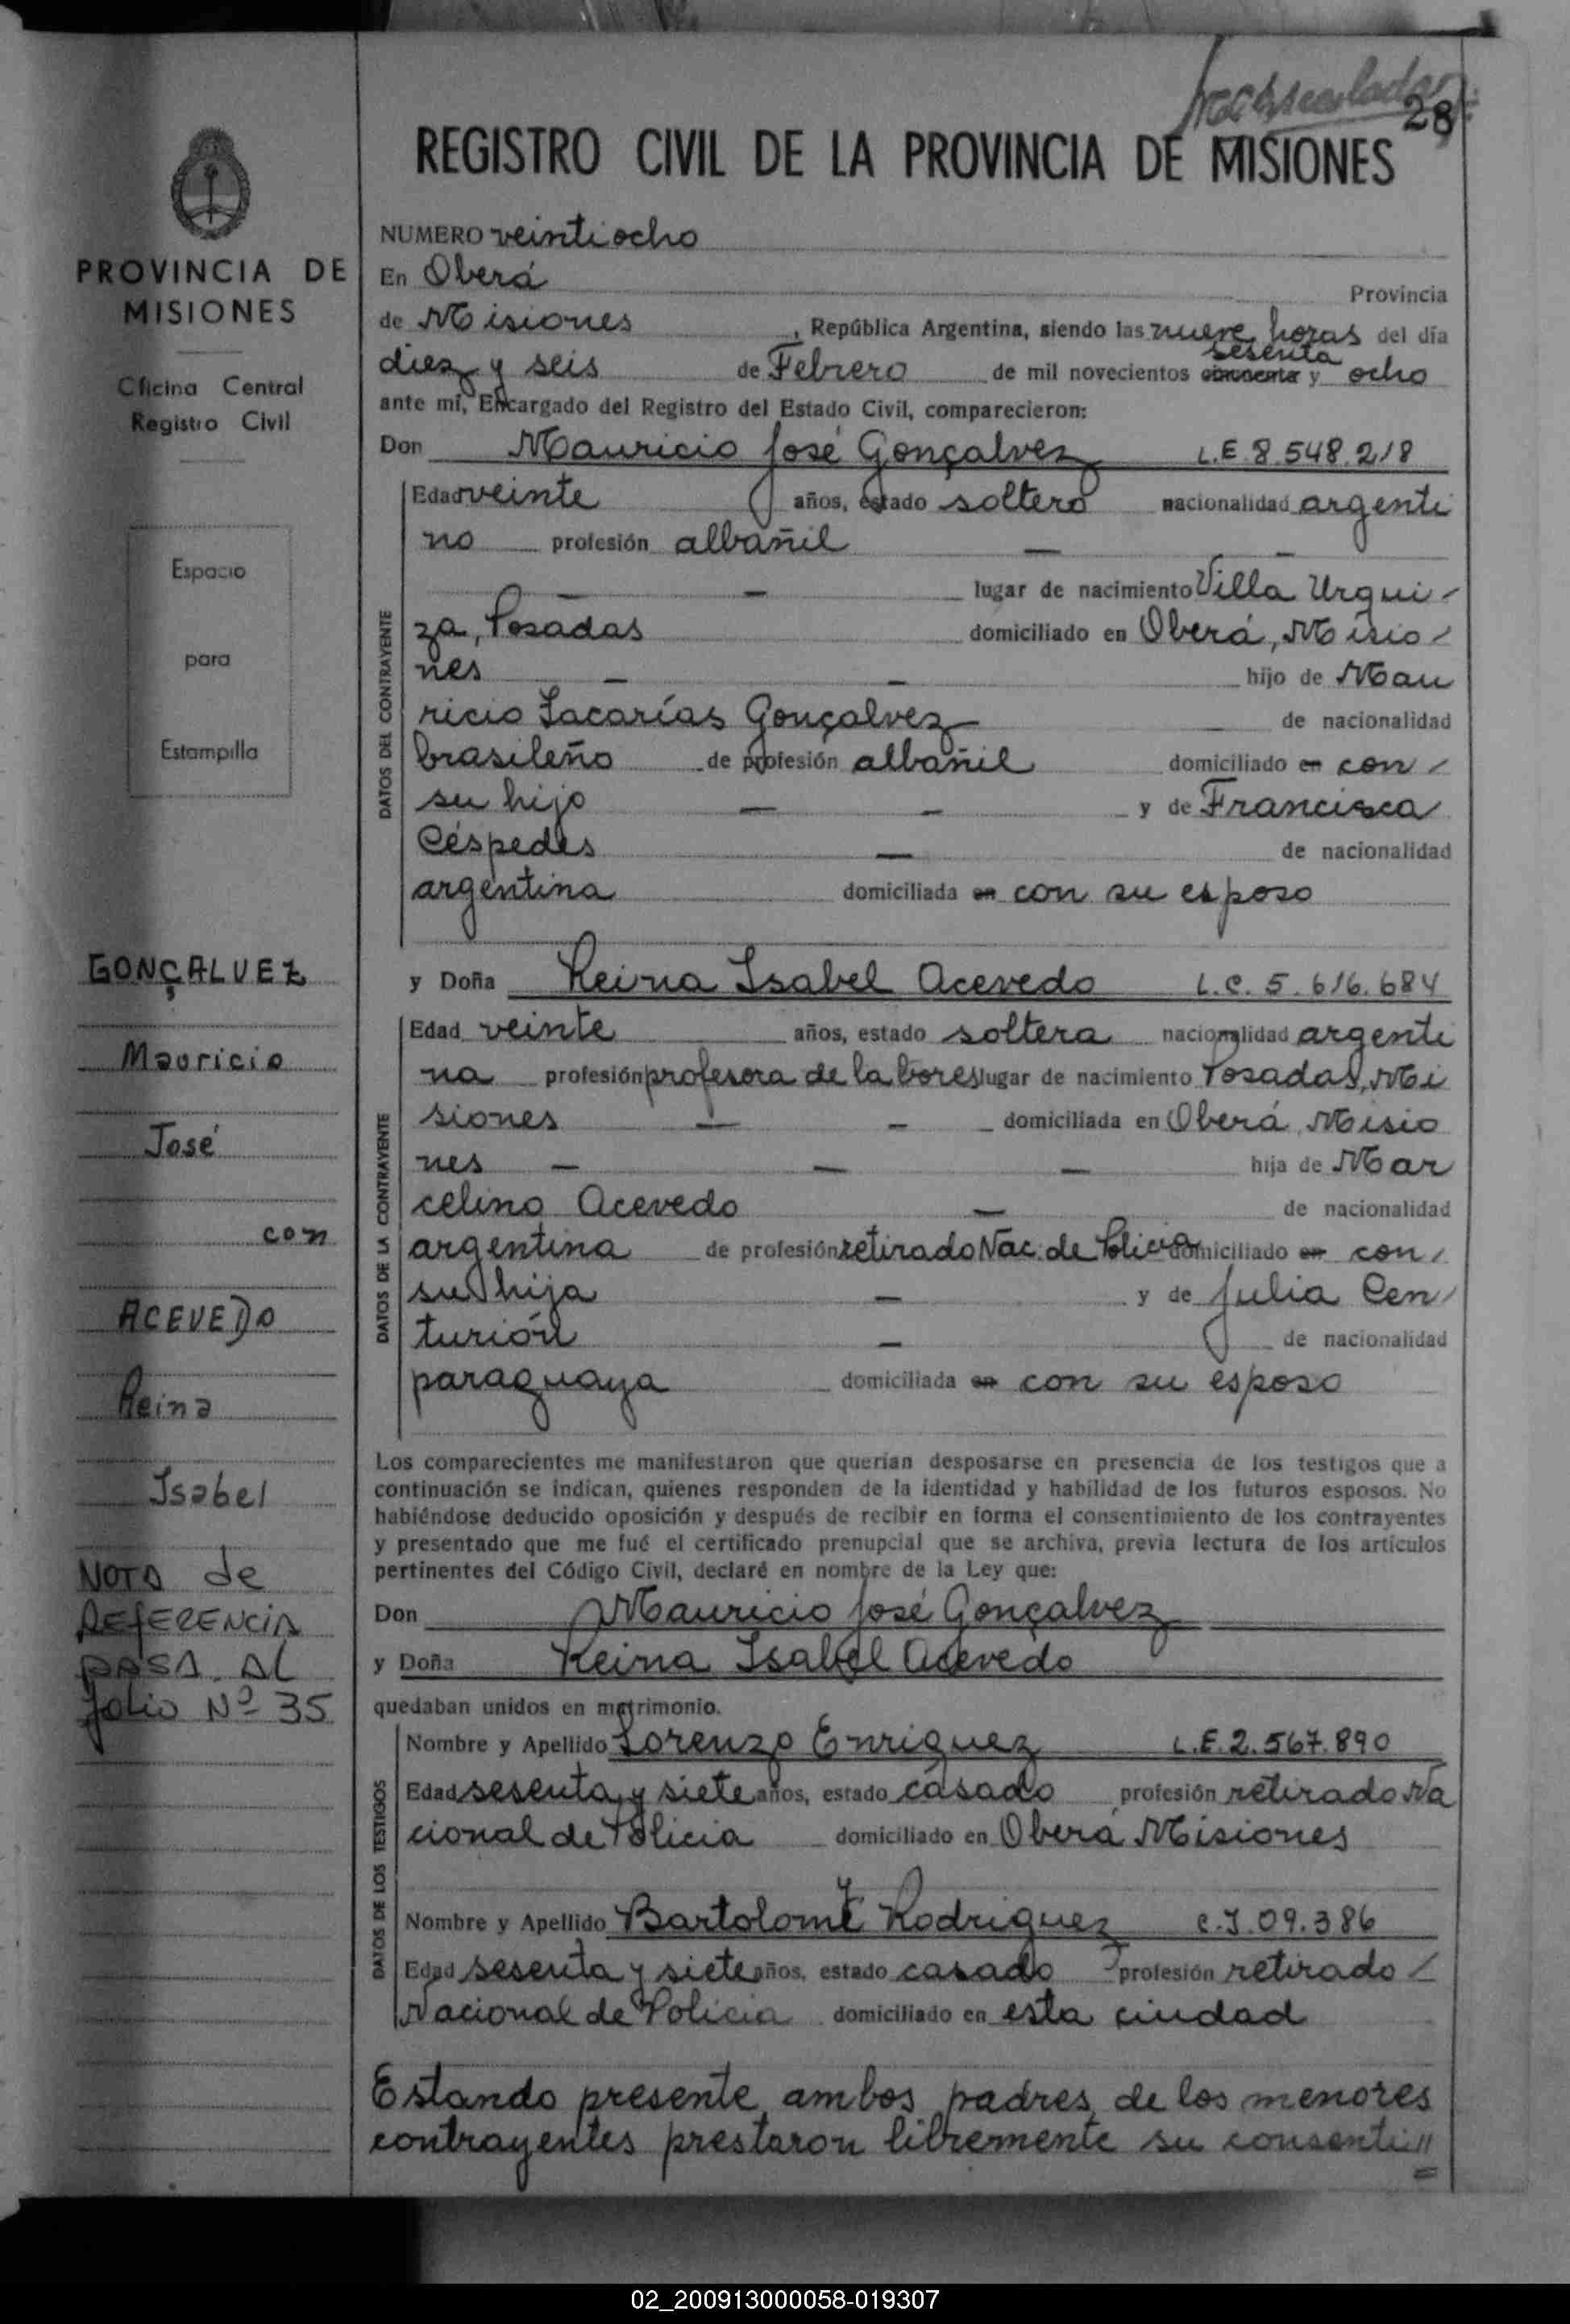 28
REGISTRO CIVIL DE LA PROVINCIA DE MISIONES
PROVINCIA DE
MISIONES
Oficina Central
Registro Civil
Espacio
para
Estampilla
GONÇALVEZ
Mauricio
José
con
ACEVEDO
Reina
Isabel
NOTA de
REFERENCIA
PASA AL
folio Nº 35
NUMERO veintiocho
En Oberá Provincia
de Misiones, República Argentina, siendo las nueve horas del día
diez y seis de Febrero de mil novecientos sesenta y ocho
ante mí, Encargado del Registro del Estado Civil, comparecieron:
Don Mauricio José Gonçalvez L.E. 8.548.218
DATOS DEL CONTRAYENTE
Edad veinte años, estado soltero nacionalidad argenti
no profesión albañil — —
— lugar de nacimiento Villa Urqui-
za, Posadas domiciliado en Oberá, Misio/
nes — — hijo de Mau
ricio Zacarías Gonçalvez de nacionalidad
brasileño de profesión albañil domiciliado en con /
su hijo — — y de Francisca
Céspedes — de nacionalidad
argentina domiciliada en con su esposo
y Doña Reina Isabel Acevedo L.C. 5.616.684
DATOS DE LA CONTRAYENTE
Edad veinte años, estado soltera nacionalidad argenti
na profesión profesora de labores lugar de nacimiento Posadas, Mi
siones — — domiciliada en Oberá, Misio
nes — — — hija de Mar
celino Acevedo — de nacionalidad
argentina de profesión retirado Nac. de Policia domiciliado en con /
su hija — y de Julia Cen/
turión — de nacionalidad
paraguaya domiciliada en con su esposo
Los comparecientes me manifestaron que querían desposarse en presencia de los testigos que a
continuación se indican, quienes responden de la identidad y habilidad de los futuros esposos. No
habiéndose deducido oposición y después de recibir en forma el consentimiento de los contrayentes
y presentado que me fué el certificado prenupcial que se archiva, previa lectura de los artículos
pertinentes del Código Civil, declaré en nombre de la Ley que:
Don Mauricio José Gonçalvez
y Doña Reina Isabel Acevedo
quedaban unidos en matrimonio.
DATOS DE LOS TESTIGOS
Nombre y Apellido Lorenzo Enriquez L.E. 2.567.890
Edad sesenta y siete años, estado casado profesión retirado Na
cional de Policia domiciliado en Oberá Misiones
Nombre y Apellido Bartolomé Rodriguez C.I. 09.386
Edad sesenta y siete años, estado casado profesión retirado /
Nacional de Policia domiciliado en esta ciudad
Estando presente ambos padres de los menores
contrayentes prestaron libremente su consenti//
02_200913000058-019307